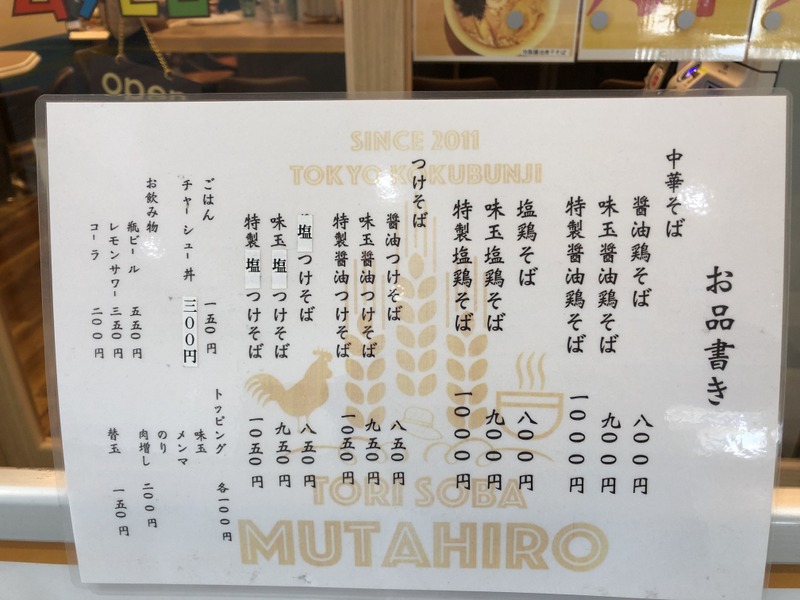 open
SINCE 2011
TOKYO KOKUBUNJI
お品書き
中華そば
醤油鶏そば 八〇〇円
味玉醤油鶏そば 九〇〇円
特製醤油鶏そば 一〇〇〇円
塩鶏そば 八〇〇円
味玉塩鶏そば 九〇〇円
特製塩鶏そば 一〇〇〇円
つけそば
醤油つけそば 八五〇円
味玉醤油つけそば 九五〇円
特製醤油つけそば 一〇五〇円
塩つけそば 八五〇円
味玉塩つけそば 九五〇円
特製塩つけそば 一〇五〇円
ごはん 一五〇円
チャーシュー丼 三〇〇円
お飲み物
瓶ビール 五五〇円
レモンサワー 三五〇円
コーラ 二〇〇円
トッピング
味玉 各一〇〇円
メンマ
のり
肉増し 二〇〇円
替玉 一五〇円
TORI SOBA
MUTAHIRO